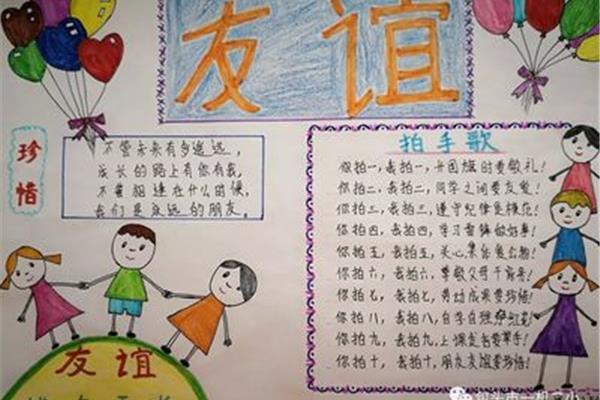 友谊
珍惜
不管未来有多遥远，
成长的路上有你有我，
不管相逢在什么时候，
我们是永远的朋友。
拍手歌
你拍一，我拍一，升国旗时要敬礼！
你拍二，我拍二，同学之间要友爱！
你拍三，我拍三，遵守纪律是模范！
你拍四，我拍四，学习雷锋做好事！
你拍五，我拍五，关心集体爱公物！
你拍六，我拍六，尊敬父母
你拍七，我拍七，劳动成果要珍惜！
你拍八，我拍八，自学自理
你拍九，我拍九，上课发言要举手！
你拍十，我拍十，朋友友谊要珍惜！
友谊